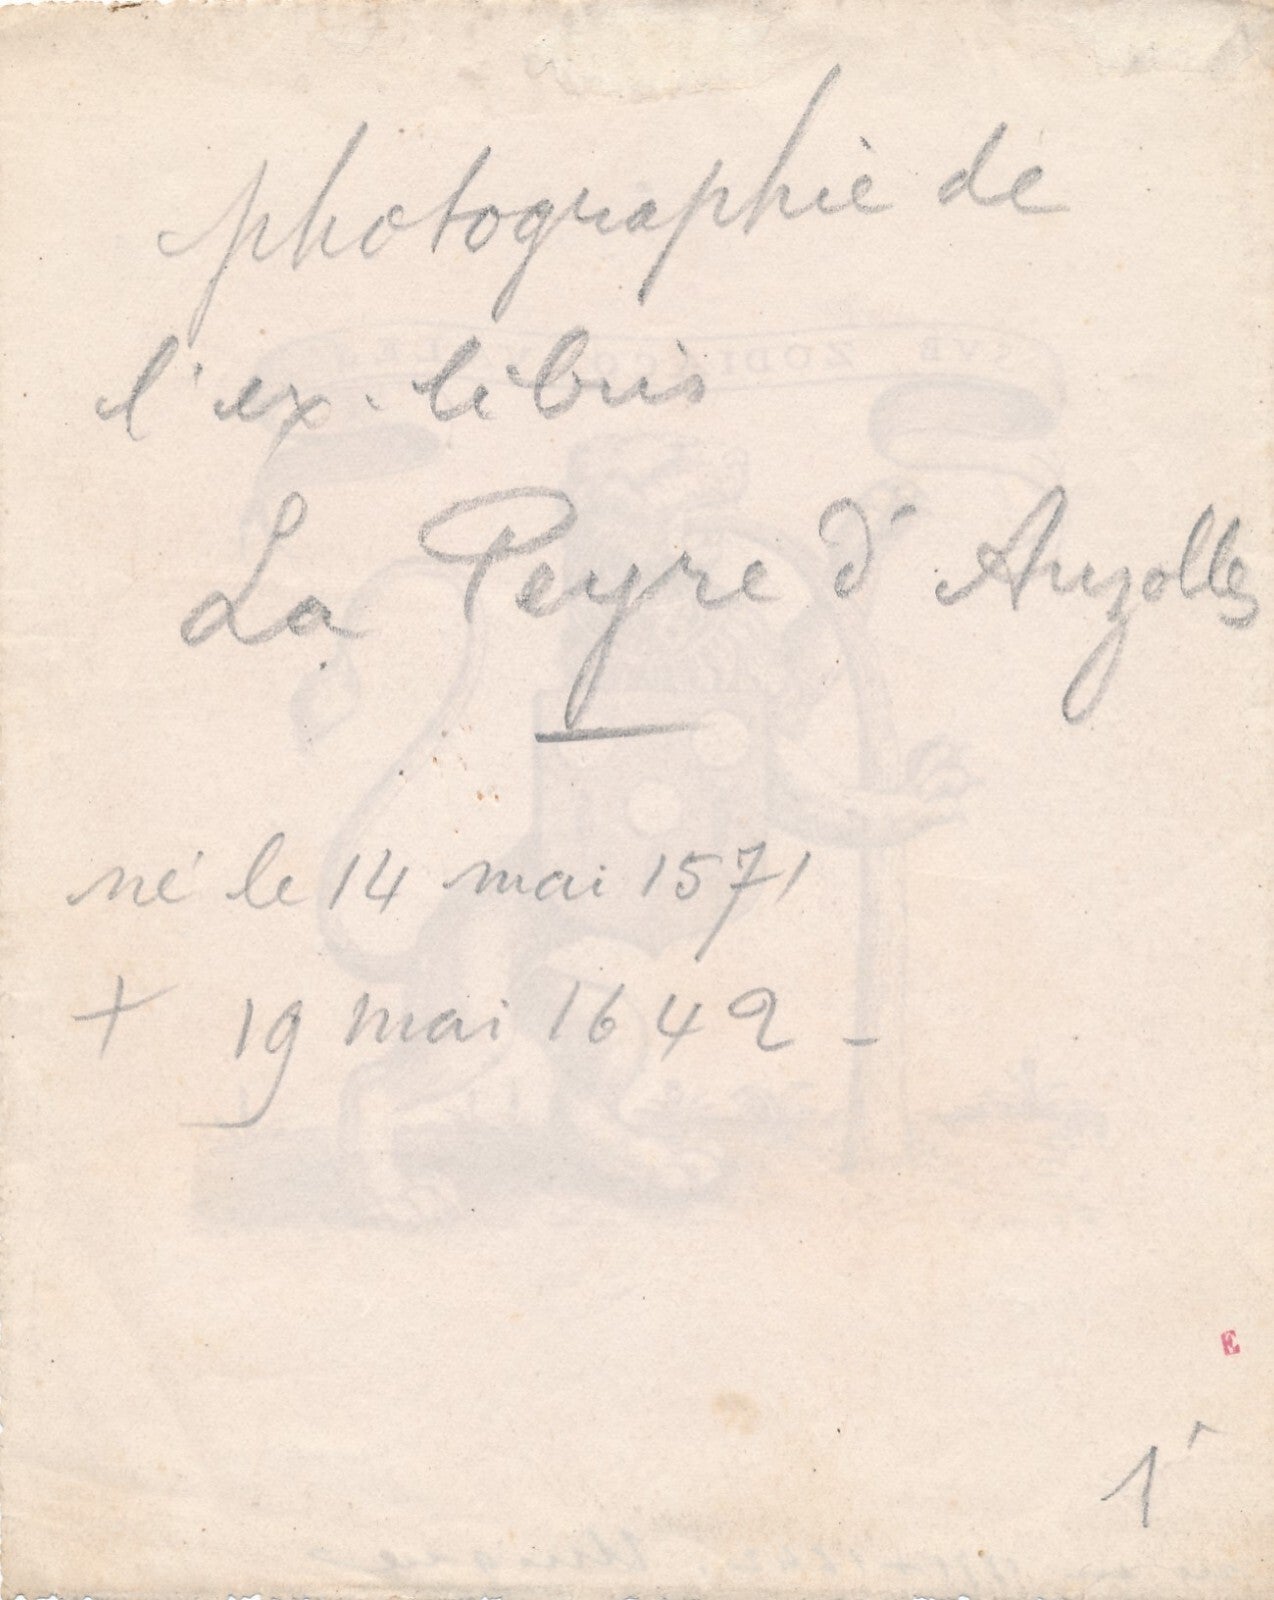 photographie de
l'ex-libris
La Peyre d'Auzolles
né le 14 mai 1571
+ 19 mai 1642 -
E
1